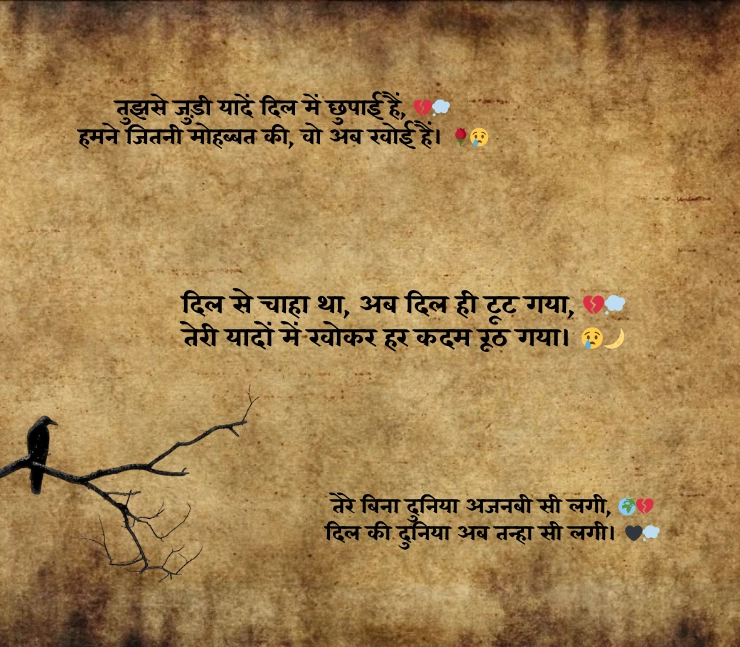 तुझसे जुड़ी यादें दिल में छुपाई हैं, 💔💭
हमने जितनी मोहब्बत की, वो अब खोई हैं। 🌹😢
दिल से चाहा था, अब दिल ही टूट गया, 💔💭
तेरी यादों में खोकर हर कदम रूठ गया। 😢🌙
तेरे बिना दुनिया अजनबी सी लगी, 🌍💔
दिल की दुनिया अब तन्हा सी लगी। 🖤💭